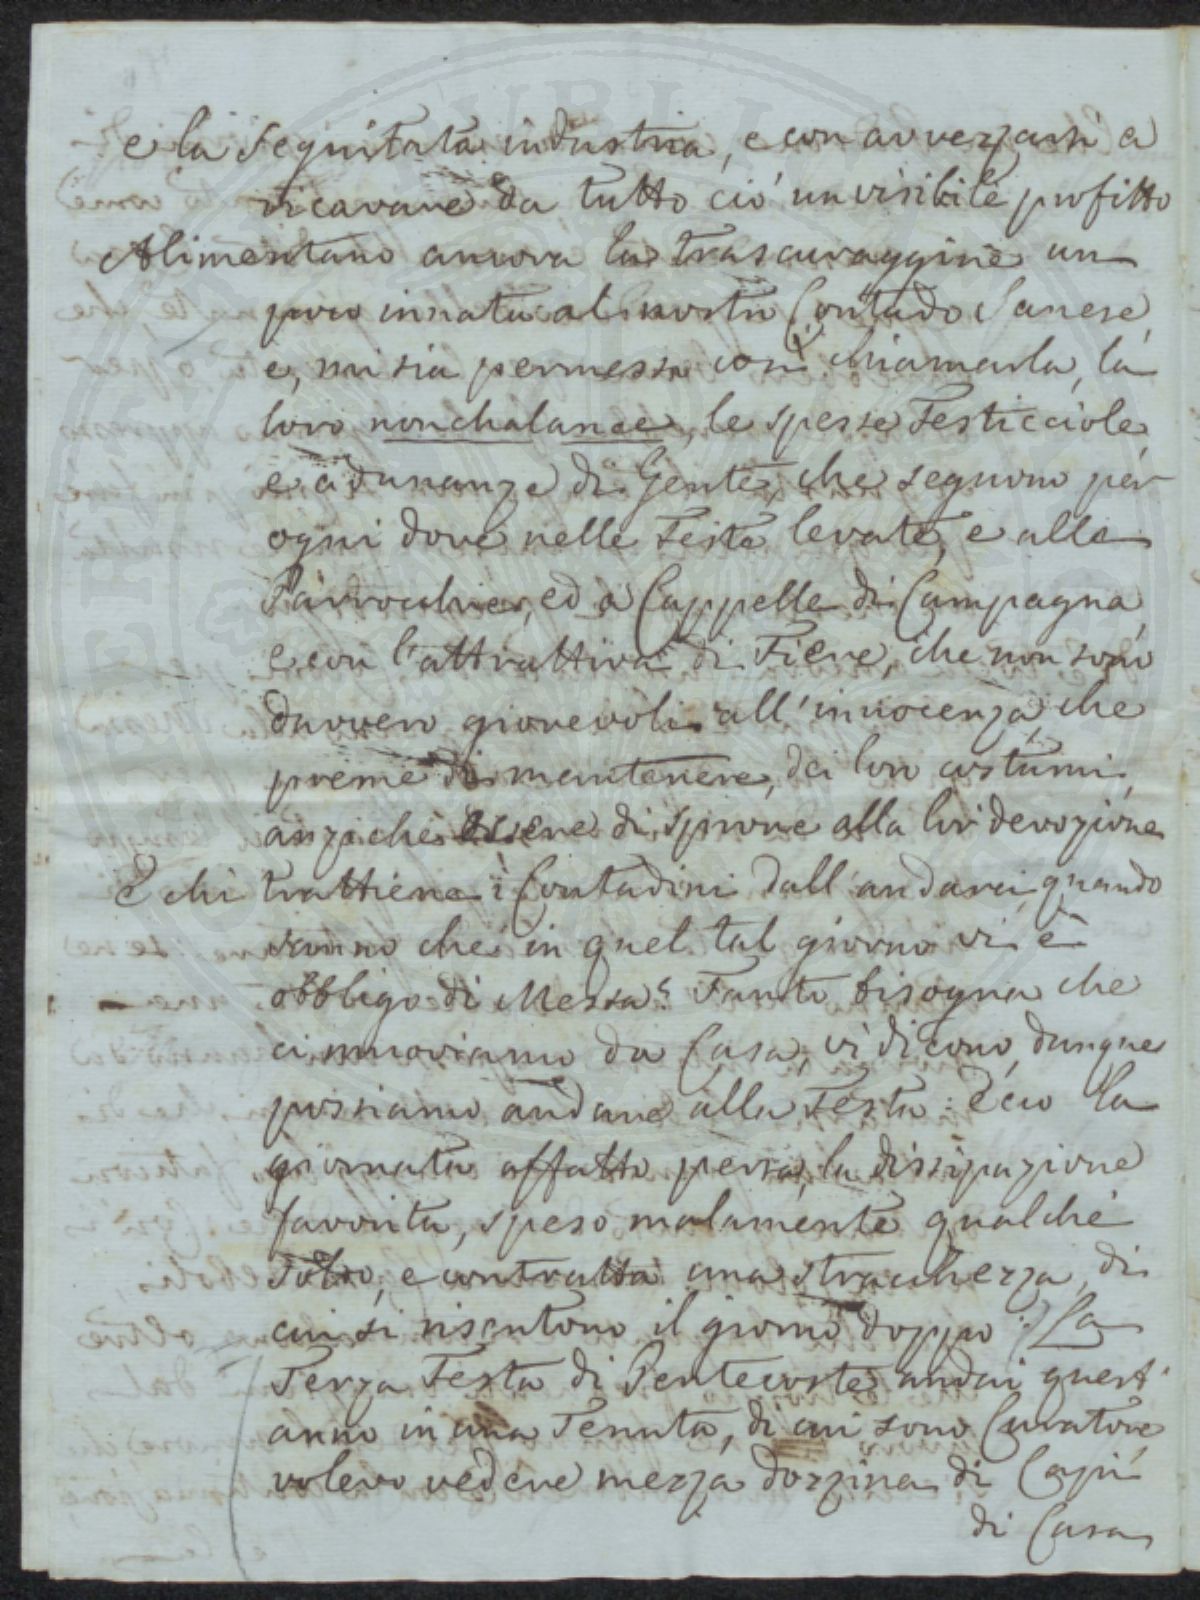 e la seguitata industria, e con avvezzarsi a
ricavare da tutto ciò un visibile profitto
Alimentano ancora la trascuraggine un
poco innata al nostro Contado Sanese,
e, mi sia permesso così chiamarla, la
loro nonchalance, le spesse Festicciole
e adunanze di Gente, che seguono per
ogni dove nelle Feste levate, e alle
Parrocchie, ed a Cappelle di Campagna,
e con l'attrattiva di Fiere, che non sono
davvero giovevoli all'innocenza, che
preme di mantenere, dei loro costumi,
anzichè essere di sprone alla lor devozione
E chi trattiene i Contadini dall'andarci, quando
sanno che in quel tal giorno vi è
obbligo di Messa? Tanto bisogna che
ci muoviamo da Casa, vi dicono, dunque
possiamo andare alla Festa: e ciò la
giornata affatto persa, la dissipazione
favorita, speso malamente qualche
soldo, e contratta una stracchezza, di
cui si risentono il giorno doppo: La
Terza Festa di Pentecoste andai quest'
anno in una Tenuta, di cui sono Curatore
volevo vedere mezza dozzina di Capi
di Casa